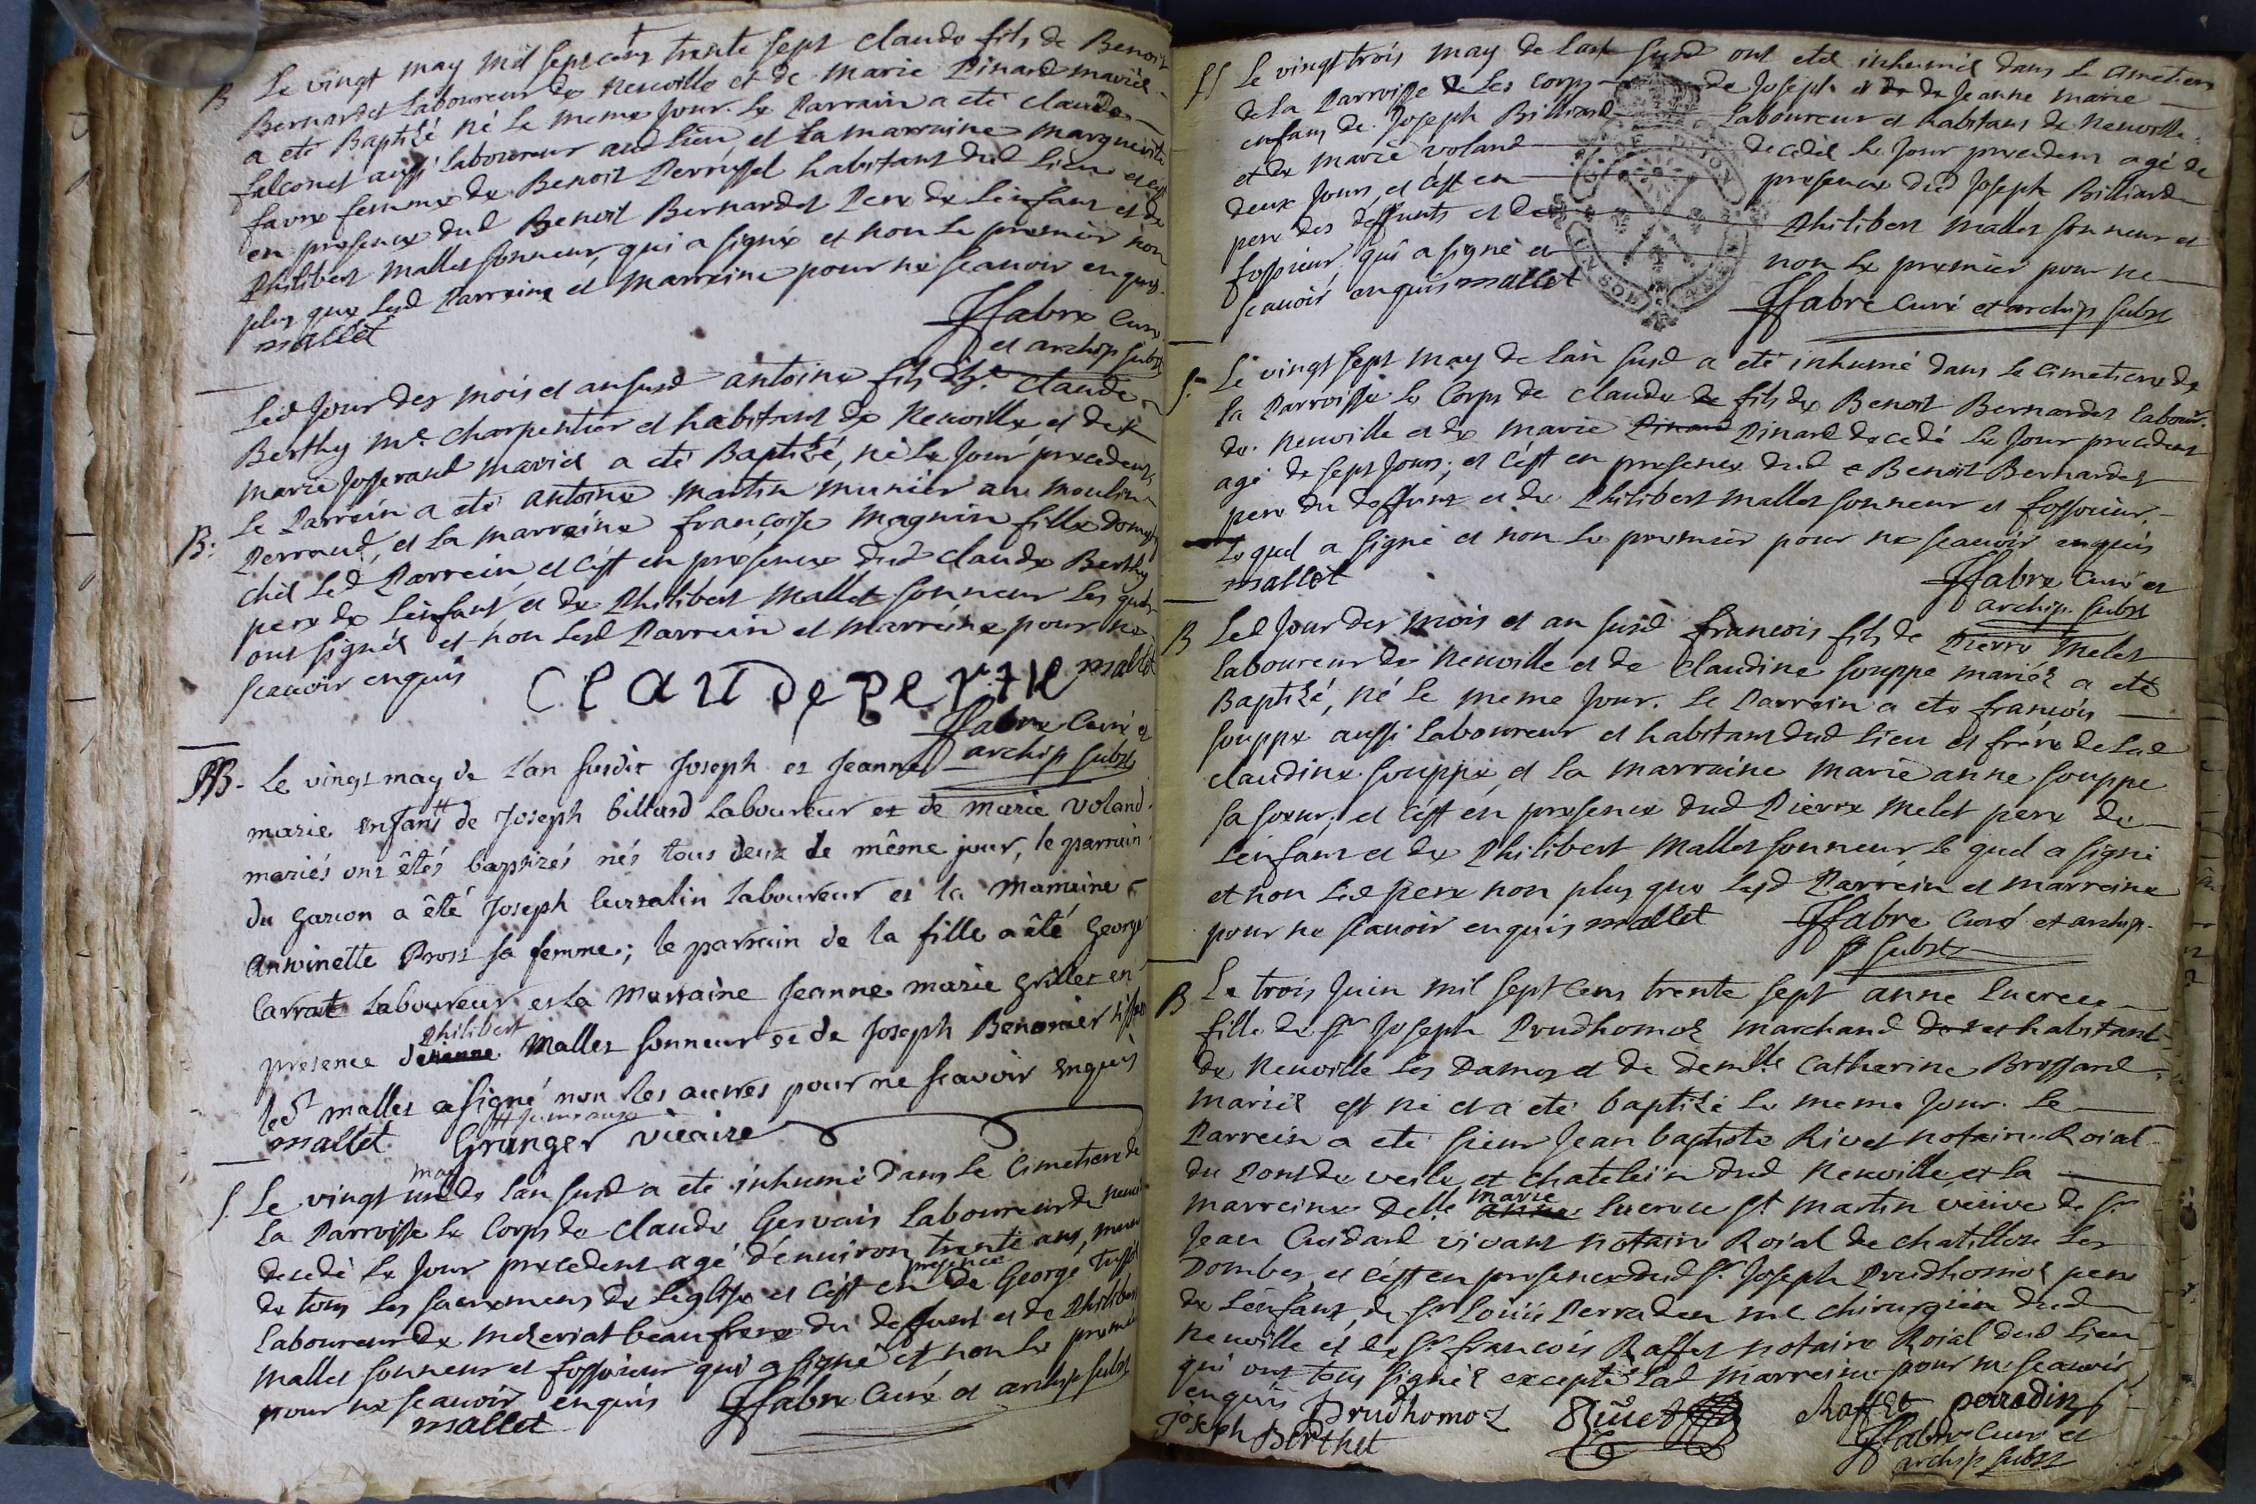 B Le vingt may mil sept cens trente sept claude fils de Benoit
Bernardet Laboureur de Neuville et de Marie Pinard mariés
a eté Baptisé né le meme Jour. Le Parrain a eté claude
falconet aussi laboureur aud lieu, et La marraine Marguerite
favre femme de Benoit Perrussel habitant dud lieu et c'est
en presence dud Benoit Bernardet Pere de L'enfant et de
Philibert Mallet sonneur, qui a signé et non le premier non
plus que Lesd Parrain et Marraine pour ne scavoir enquis.
mallet
Jfabre Curé
et archip subst
Led Jour des mois et an susd antoine fils d'h.e Claude
Berthy Me. charpentier et habitant de Neuville et de
Marie Josserand mariés a eté Baptisé, né Le Jour precedent
Le Parrein a eté antoine Martin Munier au Moulin
B. Perraud, et La marreine françoise Magnin fille domestiq
chés Led Parrein et c'est en presence dud claude Berthy
pere de L'enfant et de Philibert Mallet sonneur Les quels
ont signés et non Lesd Parrein et Marreine pour ne
scavoir enquis Claude Bertie mallet
Jfabre Curé et
archip subst
BB. Le vingt may de l'an susdit Joseph et Jeanne
marie enfants de Joseph billard Laboureur et de Marie Voland
mariés ont êtés baptizés nés tous deux le même jour, le parrain
du garçon a êté Joseph Curzalin Laboureur et la Marraine
Antoinette Prost sa femme; le parrain de la fille a êté George
Carrat Laboureur et la Marraine Jeanne marie Grillet en
presence de Philibert Mallet sonneur et de Joseph Benonier
led.t mallet a signé non les autres pour ne scavoir enquis
mallet Granger vicaire
S. Le vingt un may de l'an susd a eté inhumé dans Le Cimetiere de
La Parroisse Le Corps de claude Gervais Laboureur de Neuville
decedé Le Jour precedent agé d'environ trente ans, muni
de tous Les sacremens de L'eglise et c'est en presence de George
Laboureur de Mezeriat beaufrere du deffunt et de Philibert
Mallet sonneur et fossoieur qui a signé et non Le premier
pour ne scavoir enquis Jfabre Curé et archip subst
mallet
SS Le vingt trois may de L'an susd ont eté inhumés dans Le Cimetiere
de La Parroisse Les Corps de Joseph et de Jeanne Marie
enfans de Joseph Billiard Laboureur et habitant de Neuville
et de Marie Voland decedés Le Jour precedent agé de
deux Jours, et c'est en presence dud Joseph Billiard
pere des deffunts et de Philibert Mallet sonneur et
fossoieur, qui a signé et non Le premier pour ne
scavoir enquis mallet
Jfabre Curé et archip subst
S. Le vingt sept may de L'an susd a eté inhumé dans Le Cimetiere de
La Parroisse Le Corps de claude de fils de Benoit Bernardet Labour.
de Neuville et de Marie Pinard Pinard decedé Le Jour precedent
agé de sept Jours; et c'est en presence dud Benoit Bernardet
pere du deffunt et de Philibert Mallet sonneur et fossoieur,
Lequel a signé et non Le premier pour ne scavoir enquis
mallet Jfabre Curé et
archip. subst
B Led Jour des mois et an susd francois fils de Pierre Melet
Laboureur de Neuville et de Claudine Souppe mariés a eté
Baptisé, né Le meme Jour. Le Parrein a eté françois
Souppe aussi Laboureur et habitant dud Lieu et frere de Lad
claudine Souppe, et La Marraine Marie anne Souppe
sa soeur, et c'est en presence dud Pierre Melet pere de
L'enfant et de Philibert Mallet sonneur, Lequel a signé
et non Led pere non plus que Lesd Parrein et Marreine
pour ne scavoir enquis mallet Jfabre Curé et archip.
subst
B Le trois Juin mil sept Cens trente sept anne Lucrece
fille de Sr Joseph Prudhomoz Marchand de et habitant
de Neuville Les Dames et de demlle Catherine Brossard
mariés est né et a eté baptisé Le meme Jour. Le
Parrein a eté sieur Jean baptiste Rivet notaire Roial
du Pont de veile et chatelein dud Neuville, et La
marreine Delle anne marie Lucrece St Martin veuve de Sr
Jean Guidard vivant notaire Roial de chatillon Les
Dombes, et c'est en presence dud Sr Joseph Prudhomoz pere
de L'enfant, de Sr Loüis Perradin me chirurgien dud
Neuville et de Sr francois Raffet notaire Roial dud Lieu
qui ont tous signés excepté Lad Marreine pour ne scavoir
enquis Prudhomoz Rivet Raffet perradin
Joseph Berthet Jfabre Curé et
archip subst